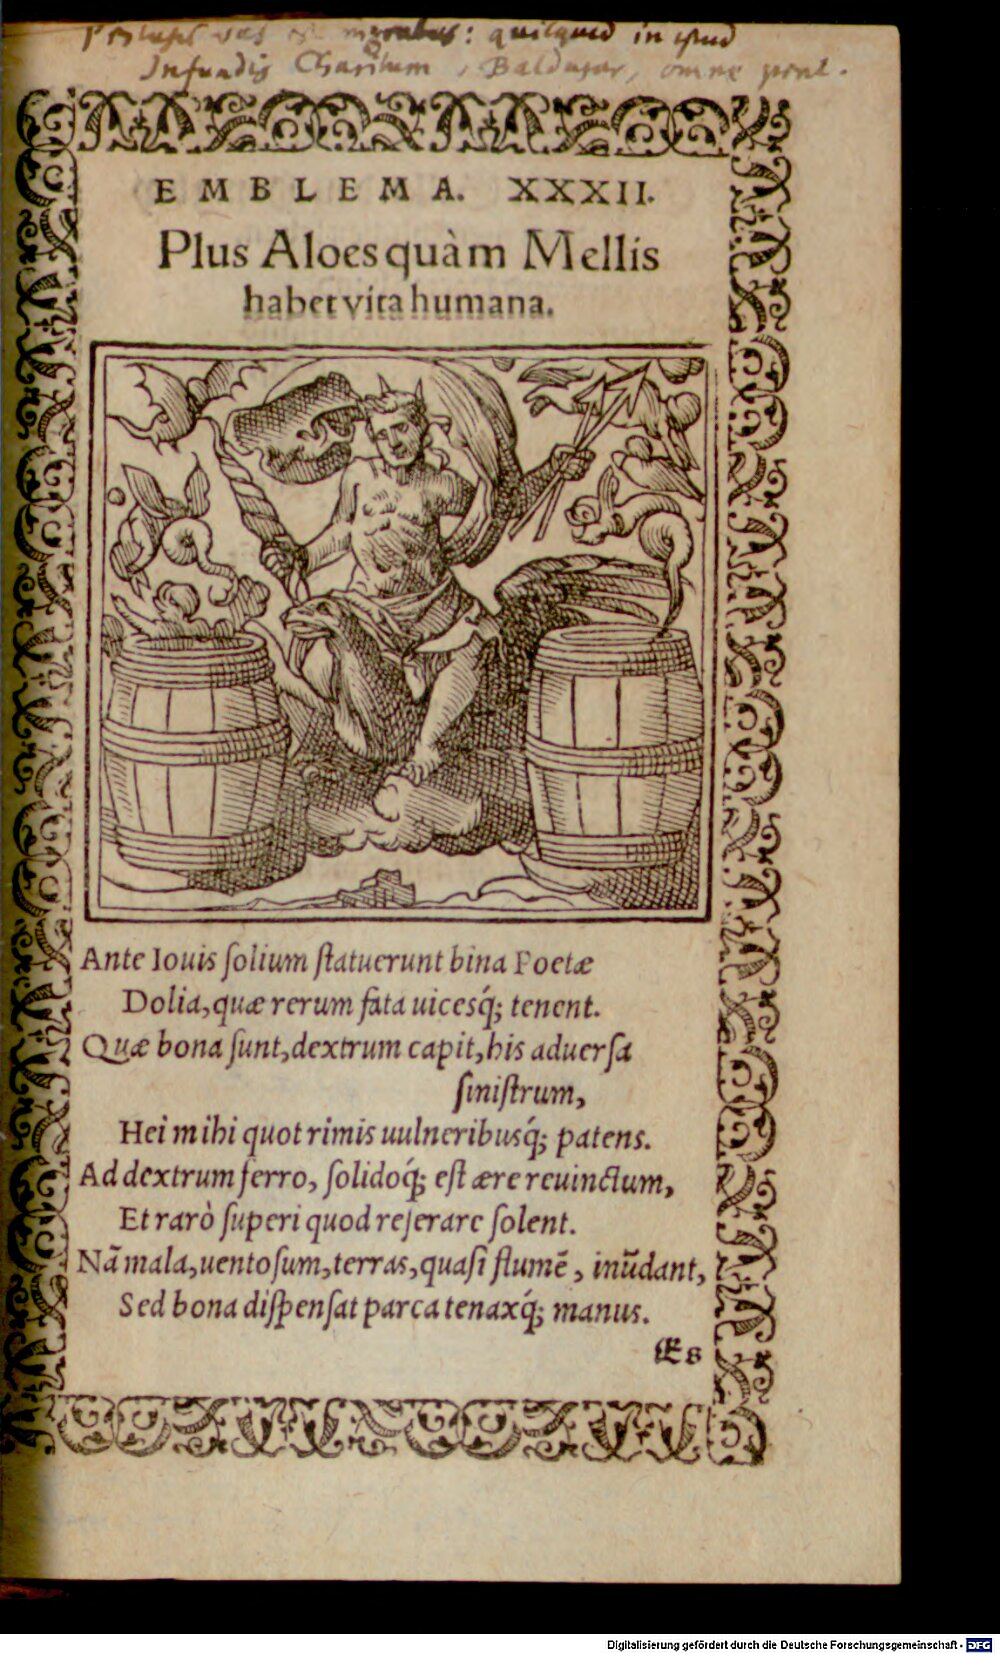 vas est quicquid in istud
Infundis Charitum, Balduine, omne perit.
EMBLEMA. XXXII.
Plus Aloes quàm Mellis
habet vita humana.
Ante Iouis ſolium ſtatuerunt bina Poetæ
Dolia, quæ rerum fata uicesq́; tenent.
Quæ bona ſunt, dextrum capit, his aduerſa
ſiniſtrum,
Hei mihi quot rimis uulneribusq́; patens.
Ad dextrum ferro, ſolidoq́; eſt ære reuinctum,
Et rarò ſuperi quod reſerare ſolent.
Nã mala, uentoſum, terras, quaſi flumẽ, inũdant,
Sed bona diſpenſat parca tenaxq́; manus.
Es
Digitalisierung gefördert durch die Deutsche Forschungsgemeinschaft - DFG